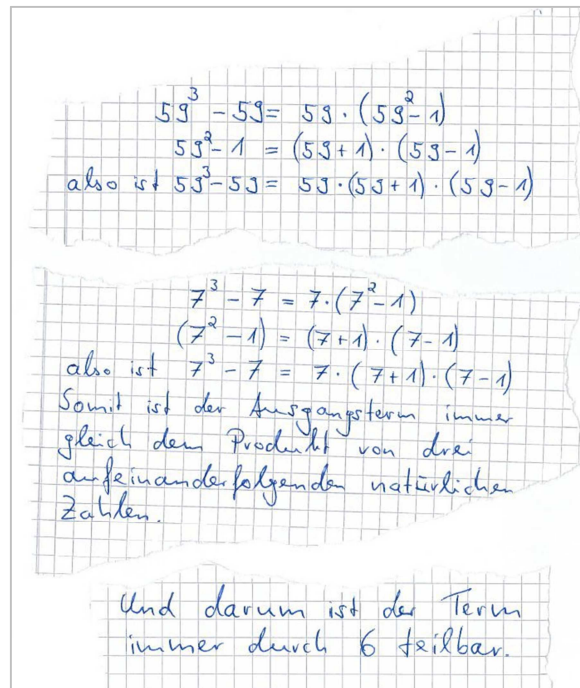 59³ - 59 = 59 · (59² - 1)
59² - 1 = (59 + 1) · (59 - 1)
also ist 59³ - 59 = 59 · (59 + 1) · (59 - 1)
7³ - 7 = 7 · (7² - 1)
(7² - 1) = (7 + 1) · (7 - 1)
also ist 7³ - 7 = 7 · (7 + 1) · (7 - 1)
Somit ist der Ausgangsterm immer
gleich dem Produkt von drei
aufeinanderfolgenden natürlichen
Zahlen.
Und darum ist der Term
immer durch 6 teilbar.